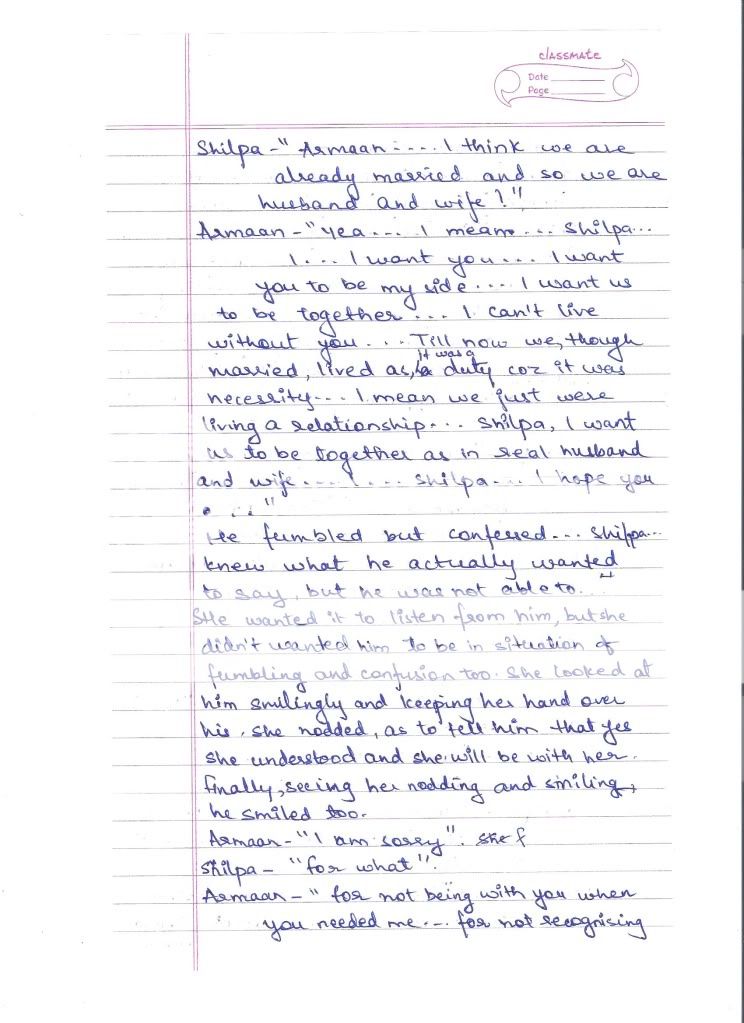 classmate
Date
Page
Shilpa - " Armaan .... I think we are
already married and so we are
husband and wife ! "
Armaan - " Yea .... I mean ... Shilpa...
I ... I want you ... I want
you to be my side .... I want us
to be together ... I can't live
without you ... Till now we, though
it was a
married, lived as, a duty coz it was
necessity... I mean we just were
living a relationship... Shilpa, I want
us to be together as in real husband
and wife .... I .... Shilpa... I hope you
... "
He fumbled but confessed... Shilpa...
knew what he actually wanted
to say, but he was not able to..
She wanted it to listen from him, but she
didn't wanted him to be in situation of
fumbling and confusion too. She looked at
him smilingly and keeping her hand over
his, she nodded, as to tell him that yes
she understood and she will be with her.
finally, seeing her nodding and smiling,
he smiled too.
Armaan - " I am sorry ". She f
Shilpa - " for what ".
Armaan - " for not being with you when
you needed me ... for not recognising